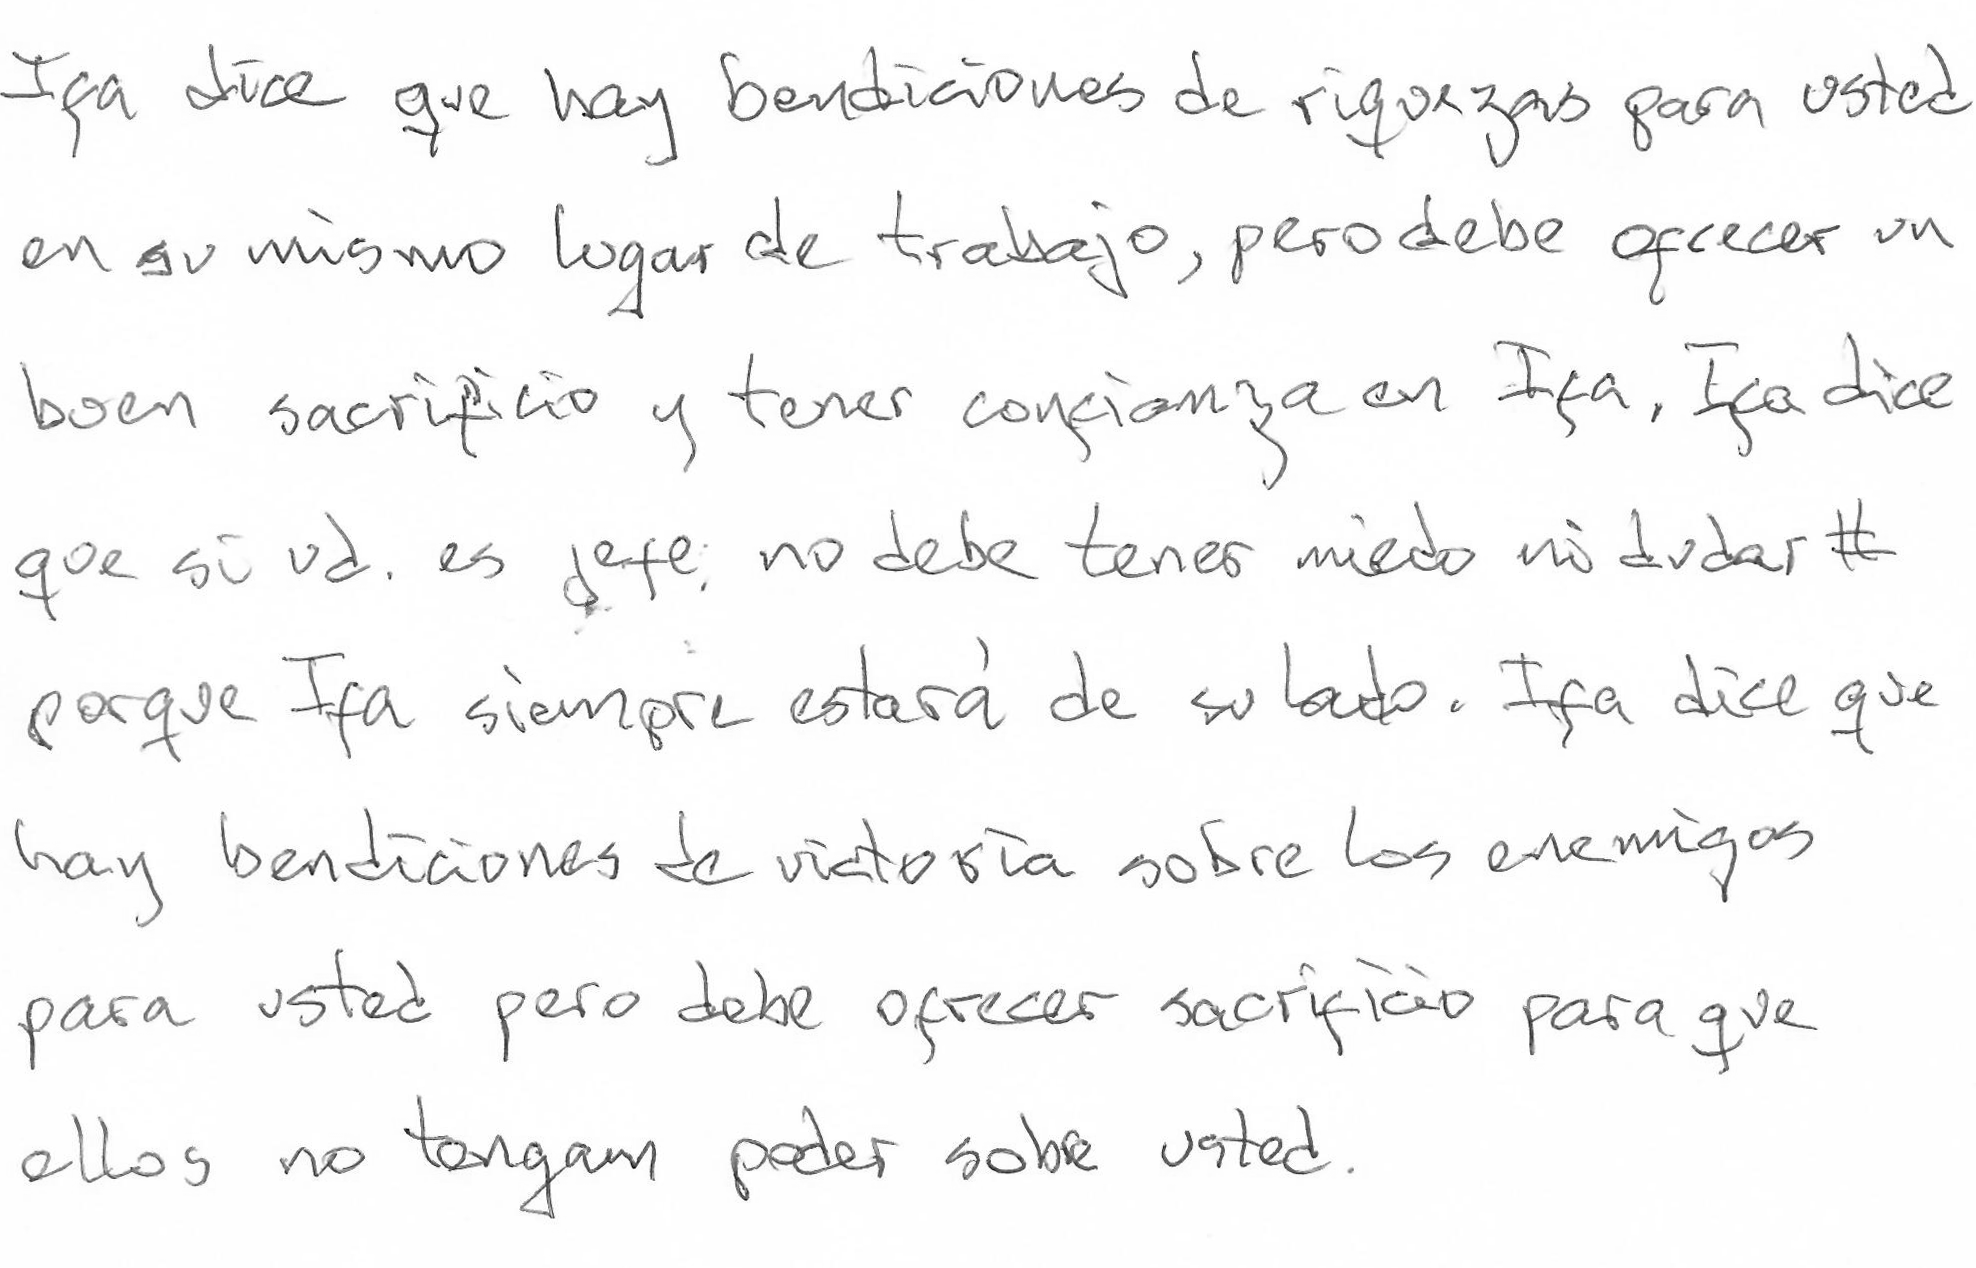 Ifa dice que hay bendiciones de riquezas para usted
en su mismo lugar de trabajo, pero debe ofrecer un
buen sacrificio y tener confianza en Ifa, Ifa dice
que si ud. es jefe; no debe tener miedo ni dudar #
porque Ifa siempre estará de su lado. Ifa dice que
hay bendiciones de victoria sobre los enemigos
para usted pero debe ofrecer sacrificio para que
ellos no tengan poder sobre usted.